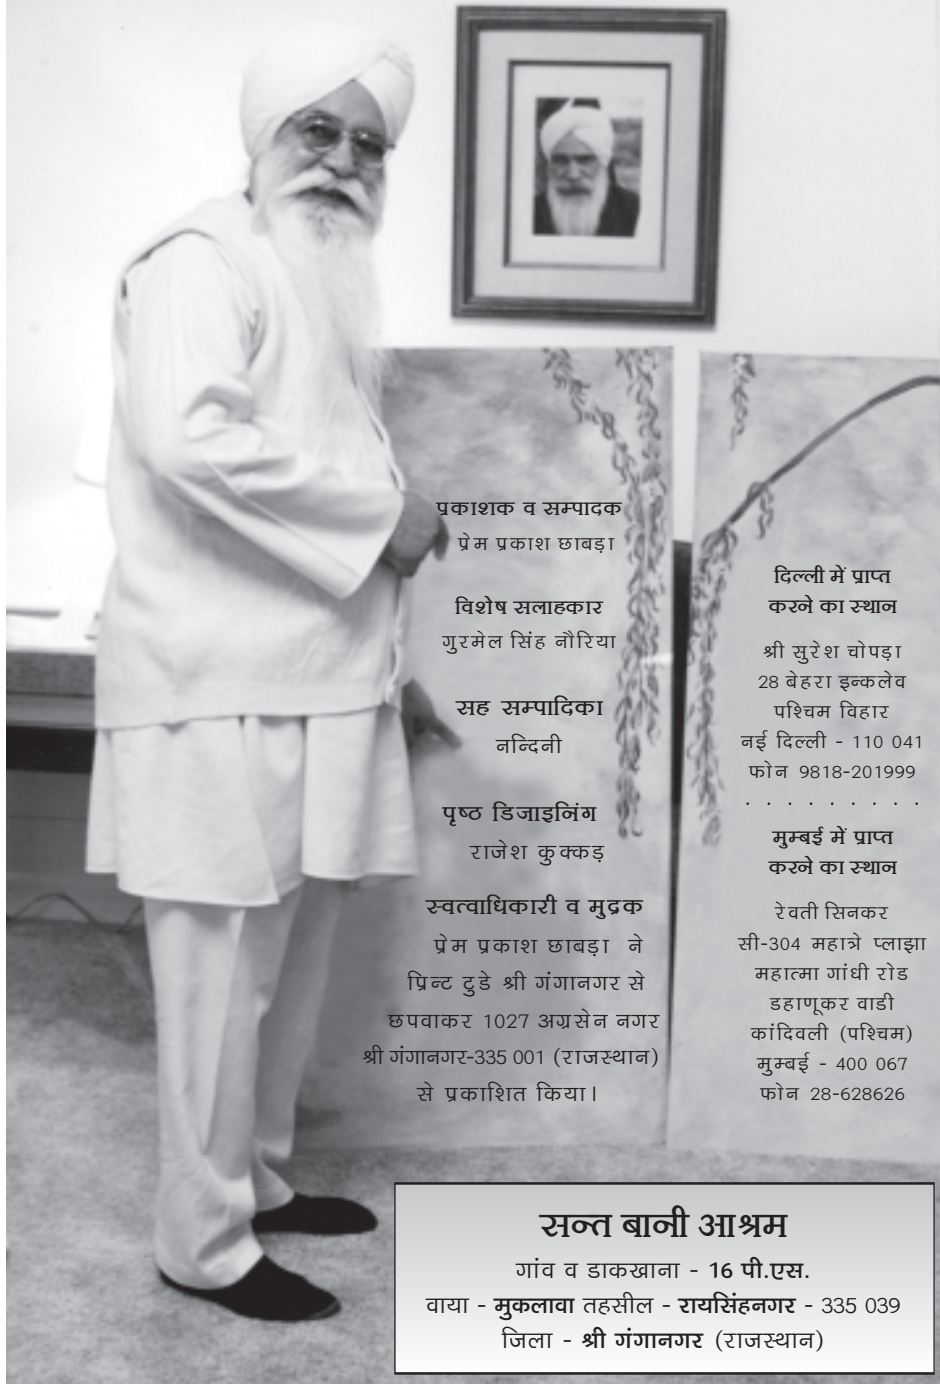 प्रकाशक व सम्पादक
प्रेम प्रकाश छाबड़ा
विशेष सलाहकार
गुरमेल सिंह नौरिया
सह सम्पादिका
नन्दिनी
पृष्ठ डिजाइनिंग
राजेश कुक्कड़
स्वत्वाधिकारी व मुद्रक
प्रेम प्रकाश छाबड़ा ने
प्रिन्ट टुडे श्री गंगानगर से
छपवाकर 1027 अग्रसेन नगर
श्री गंगानगर-335 001 (राजस्थान)
से प्रकाशित किया।
दिल्ली में प्राप्त
करने का स्थान
श्री सुरेश चोपड़ा
28 बेहरा इन्कलेव
पश्चिम विहार
नई दिल्ली - 110 041
फोन 9818-201999
. . . . . . . . .
मुम्बई में प्राप्त
करने का स्थान
रेवती सिनकर
सी-304 महात्रे प्लाझा
महात्मा गांधी रोड
डहाणूकर वाडी
कांदिवली (पश्चिम)
मुम्बई - 400 067
फोन 28-628626
सन्त बानी आश्रम
गांव व डाकखाना - 16 पी.एस.
वाया - मुकलावा तहसील - रायसिंहनगर - 335 039
जिला - श्री गंगानगर (राजस्थान)